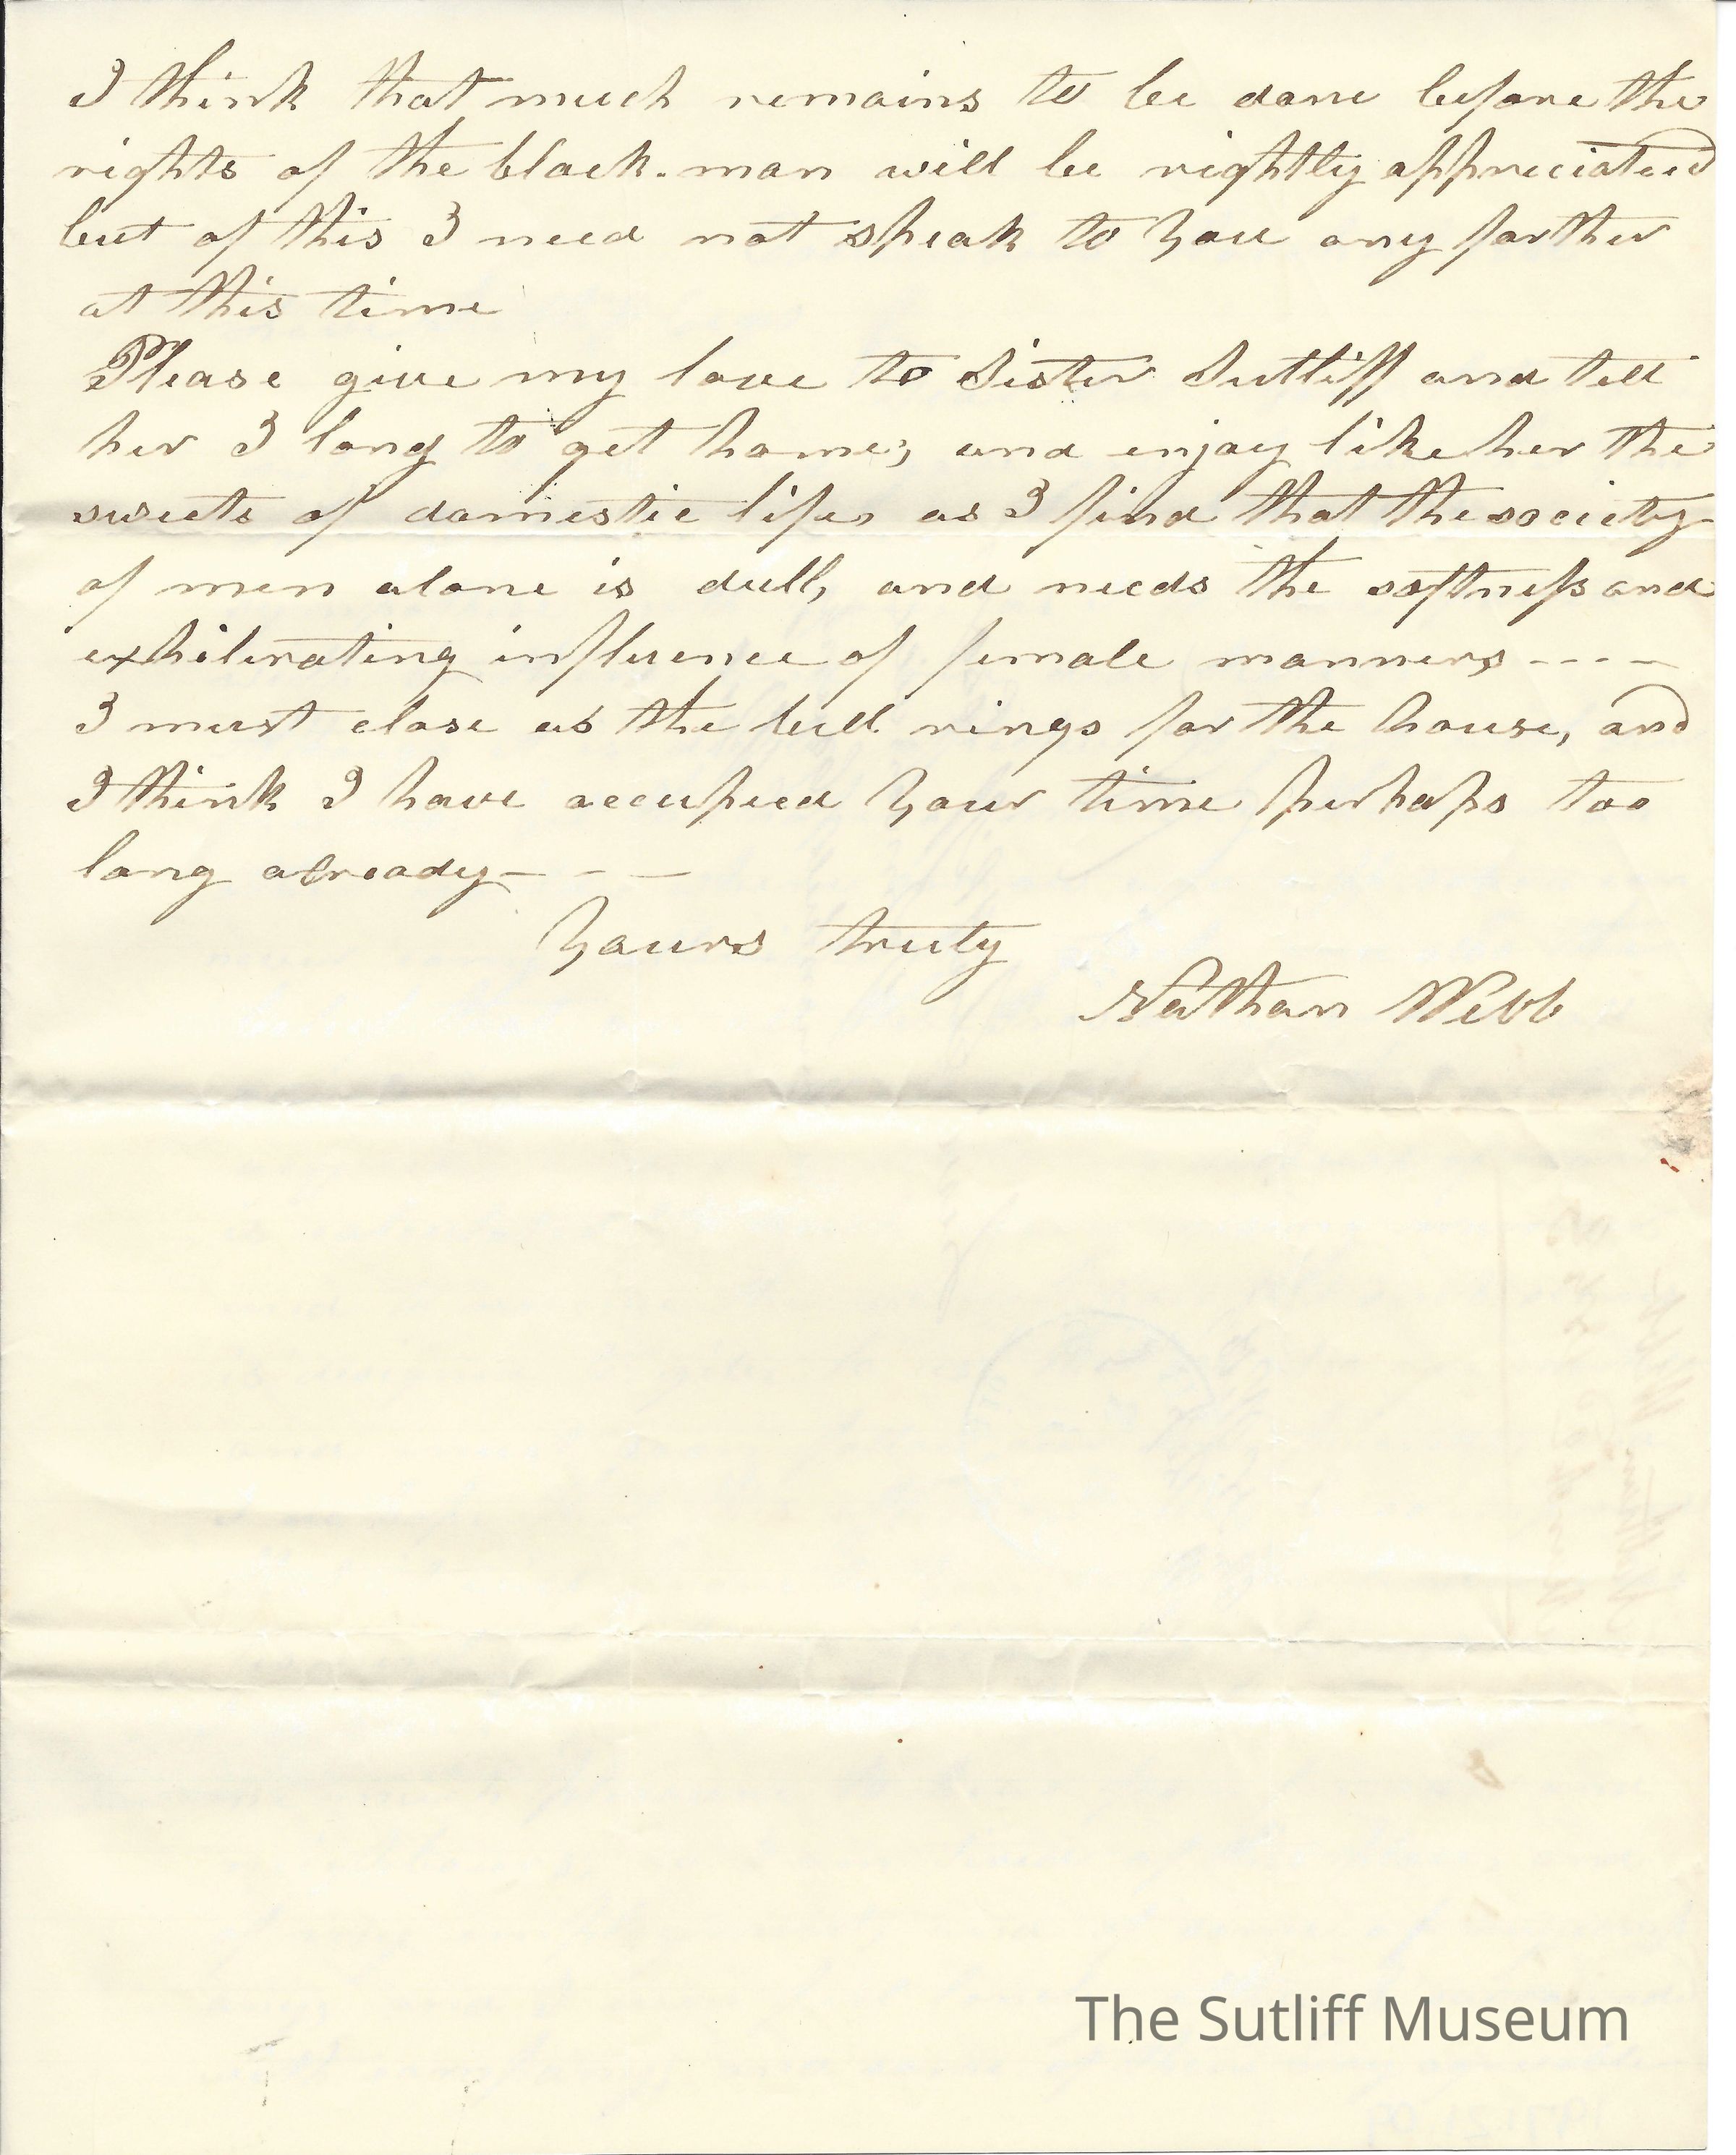 I think that much remains to be done before the
rights of the black-man will be rightly appreciated
but of this I need not speak to you any farther
at this time
Please give my love to Sister Sutliff and tell
her I long to get home, and enjoy like her the
sweets of domestic life, as I find that the society
of men alone is dull, and needs the softness and
exhilerating influence of female manners - - - -
I must close as the bell rings for the house, and
I think I have occupied your time perhaps too
long already - - -
Yours truly
Nathan Webb
The Sutliff Museum